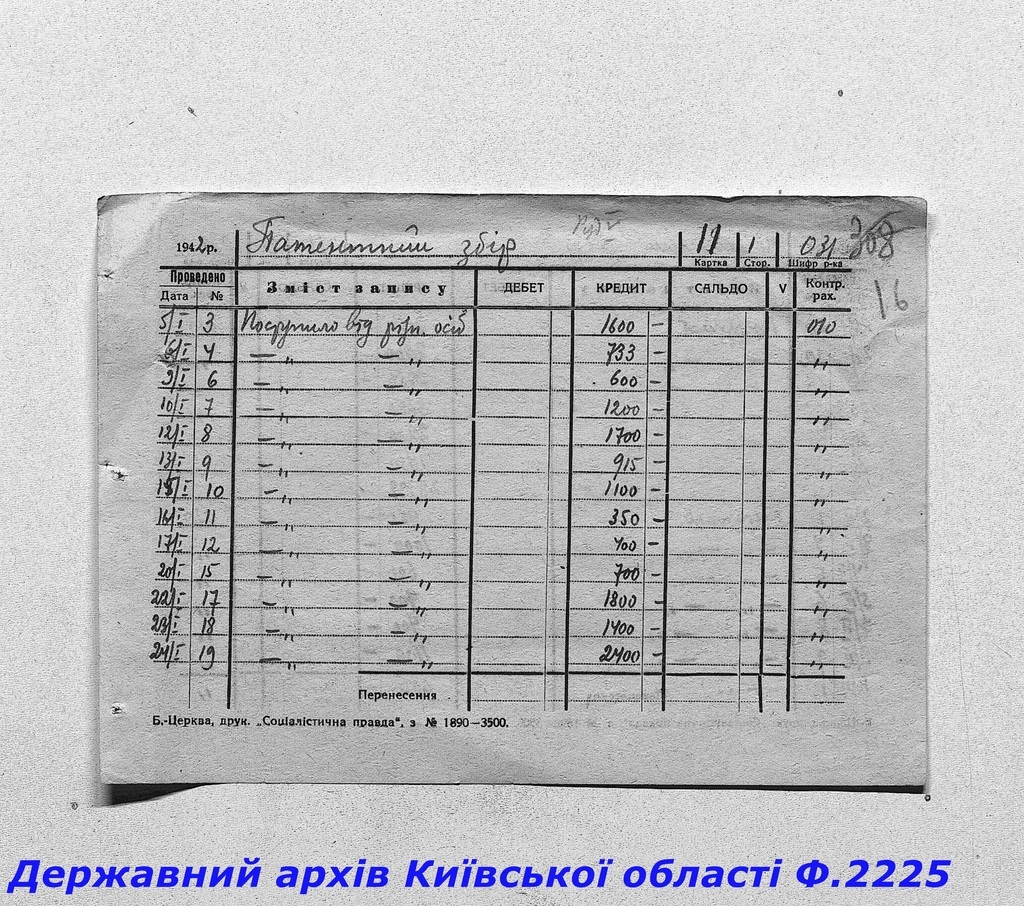 308
1942 р. Патентний збір 11 1 031
Картка Стор. Шифр р-ка
16
Проведено Зміст запису ДЕБЕТ КРЕДИТ САЛЬДО V Контр. рах.
Дата №
5/I 3 Поступило від різн. осіб 1600 — 010
6/I 4 — „ — „ 733 — „
9/I 6 — „ — „ 600 — „
10/I 7 — „ — „ 1200 — „
12/I 8 — „ — „ 1700 — „
13/I 9 — „ — „ 915 — „
15/I 10 — „ — „ 1100 — „
16/I 11 — „ — „ 350 — „
17/I 12 — „ — „ 400 — „
20/I 15 — „ — „ 700 — „
22/I 17 — „ — „ 1800 — „
23/I 18 — „ — „ 1400 — „
24/I 19 — „ — „ 2400 — „
Перенесення
Б.-Церква, друк. „Соціалістична правда“, з № 1890—3500.
Державний архів Київської області Ф.2225